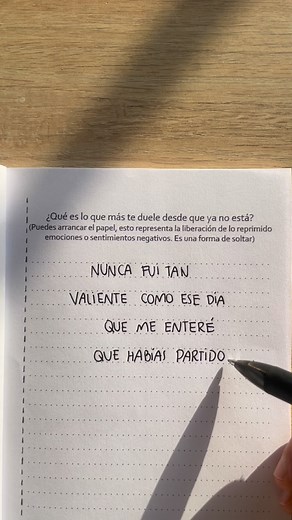 ¿Qué es lo que más te duele desde que ya no está?
(Puedes arrancar el papel, esto representa la liberación de lo reprimido
emociones o sentimientos negativos. Es una forma de soltar)
NUNCA FUI TAN
VALIENTE COMO ESE DÍA
QUE ME ENTERÉ
QUE HABÍAS PARTIDO